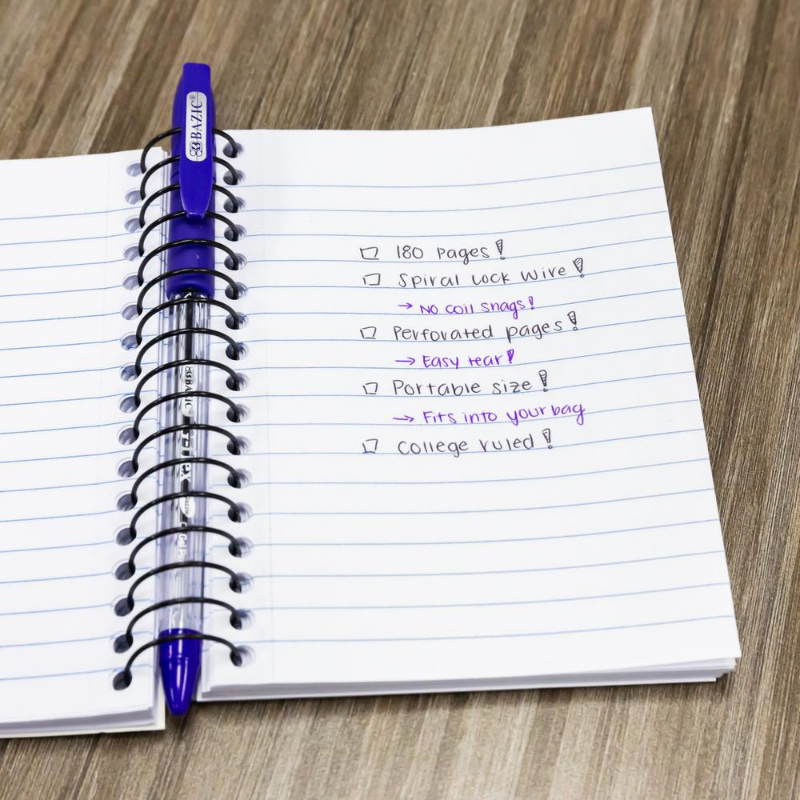 BAZIC®
BAZIC
☐ 180 Pages!
☐ Spiral Lock Wire!
→ No coil snags!
☐ Perforated pages!
→ Easy tear!
☐ Portable size!
→ Fits into your bag
☐ College ruled!